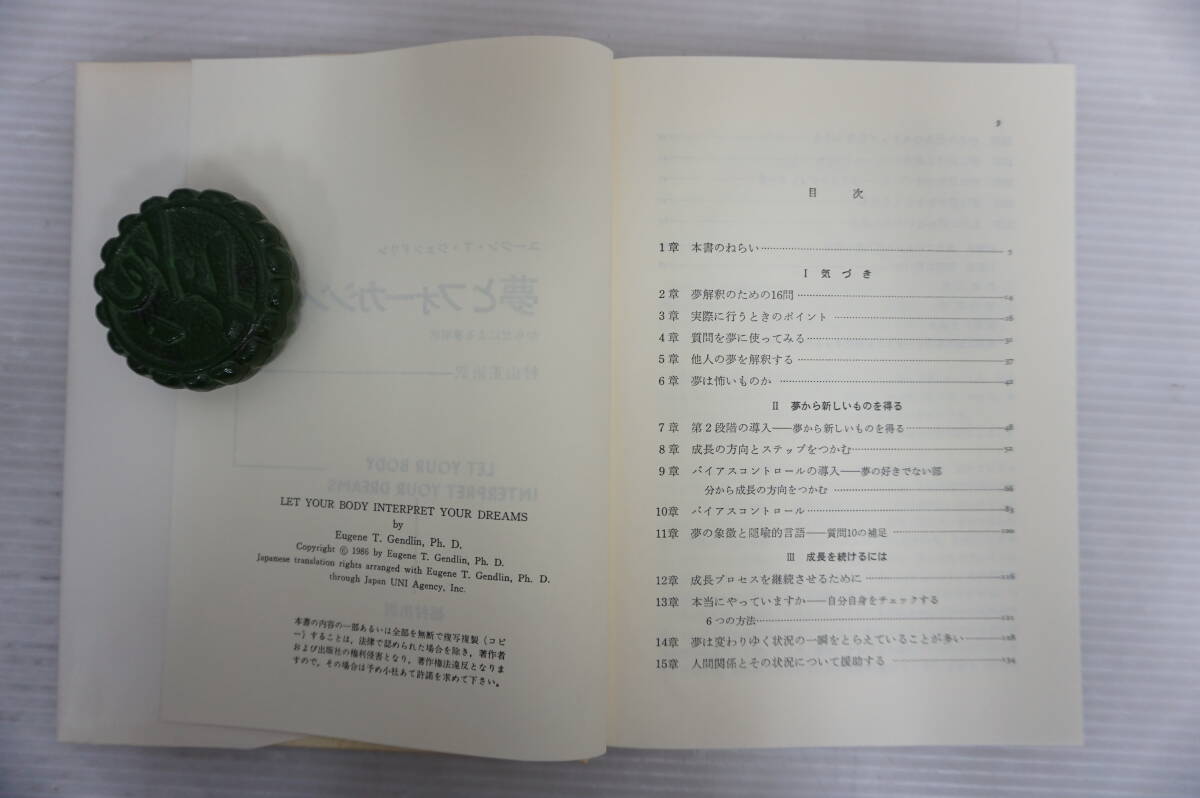 LET YOUR BODY INTERPRET YOUR DREAMS
by
Eugene T. Gendlin, Ph. D.
Copyright © 1986 by Eugene T. Gendlin, Ph. D.
Japanese translation rights arranged with Eugene T. Gendlin, Ph. D.
through Japan UNI Agency, Inc.
本書の内容の一部あるいは全部を無断で複写複製（コピ
ー）することは，法律で認められた場合を除き，著作者
および出版社の権利侵害となり，著作権法違反となりま
すので，その場合は予め小社あて許諾を求めて下さい。
目　次
1章　本書のねらい
I　気づき
2章　夢解釈のための16問
3章　実際に行うときのポイント
4章　質問を夢に使ってみる
5章　他人の夢を解釈する
6章　夢は怖いものか
II　夢から新しいものを得る
7章　第2段階の導入——夢から新しいものを得る
8章　成長の方向とステップをつかむ
9章　バイアスコントロールの導入——夢の好きでない部
分から成長の方向をつかむ
10章　バイアスコントロール
11章　夢の象徴と隠喩的言語——質問10の補足
III　成長を続けるには
12章　成長プロセスを継続させるために
13章　本当にやっていますか——自分自身をチェックする
6つの方法
14章　夢は変わりゆく状況の一瞬をとらえていることが多い
15章　人間関係とその状況について援助する